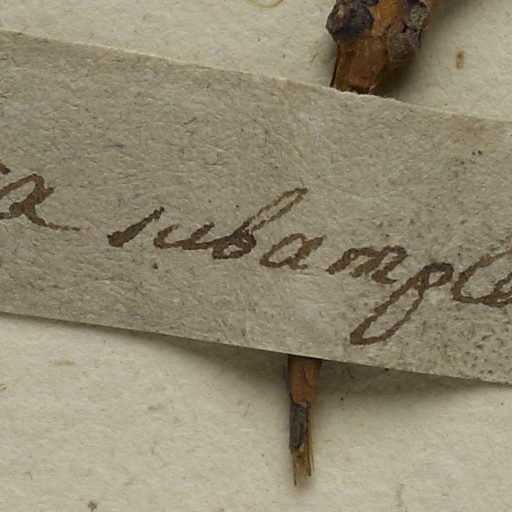 a subample